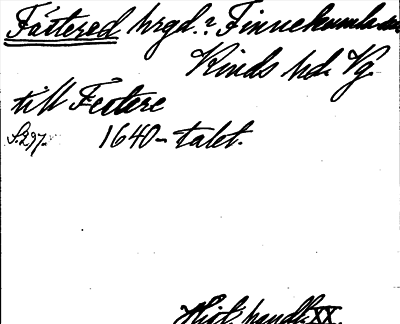 Fästered hrgd.? Finnekumla sn
Kinds hd. Vg.
till Festere
S.297. 1640-talet.
Hist. handl. XX.